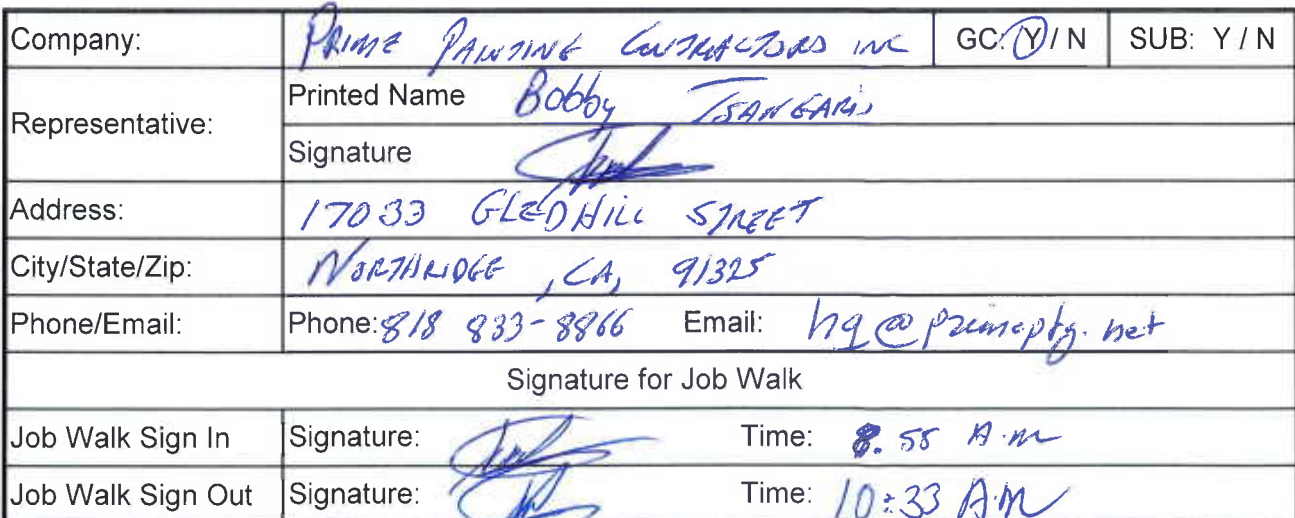 Company: PRIME PAINTING CONTRACTORS INC GC: Y / N SUB: Y / N
Representative: Printed Name Bobby TSANGARIS
Signature
Address: 17033 GLEDHILL STREET
City/State/Zip: NORTHRIDGE, CA, 91325
Phone/Email: Phone: 818 833-8866 Email: hq@primeptg.net
Signature for Job Walk
Job Walk Sign In Signature: Time: 8.55 A.M
Job Walk Sign Out Signature: Time: 10:33 AM